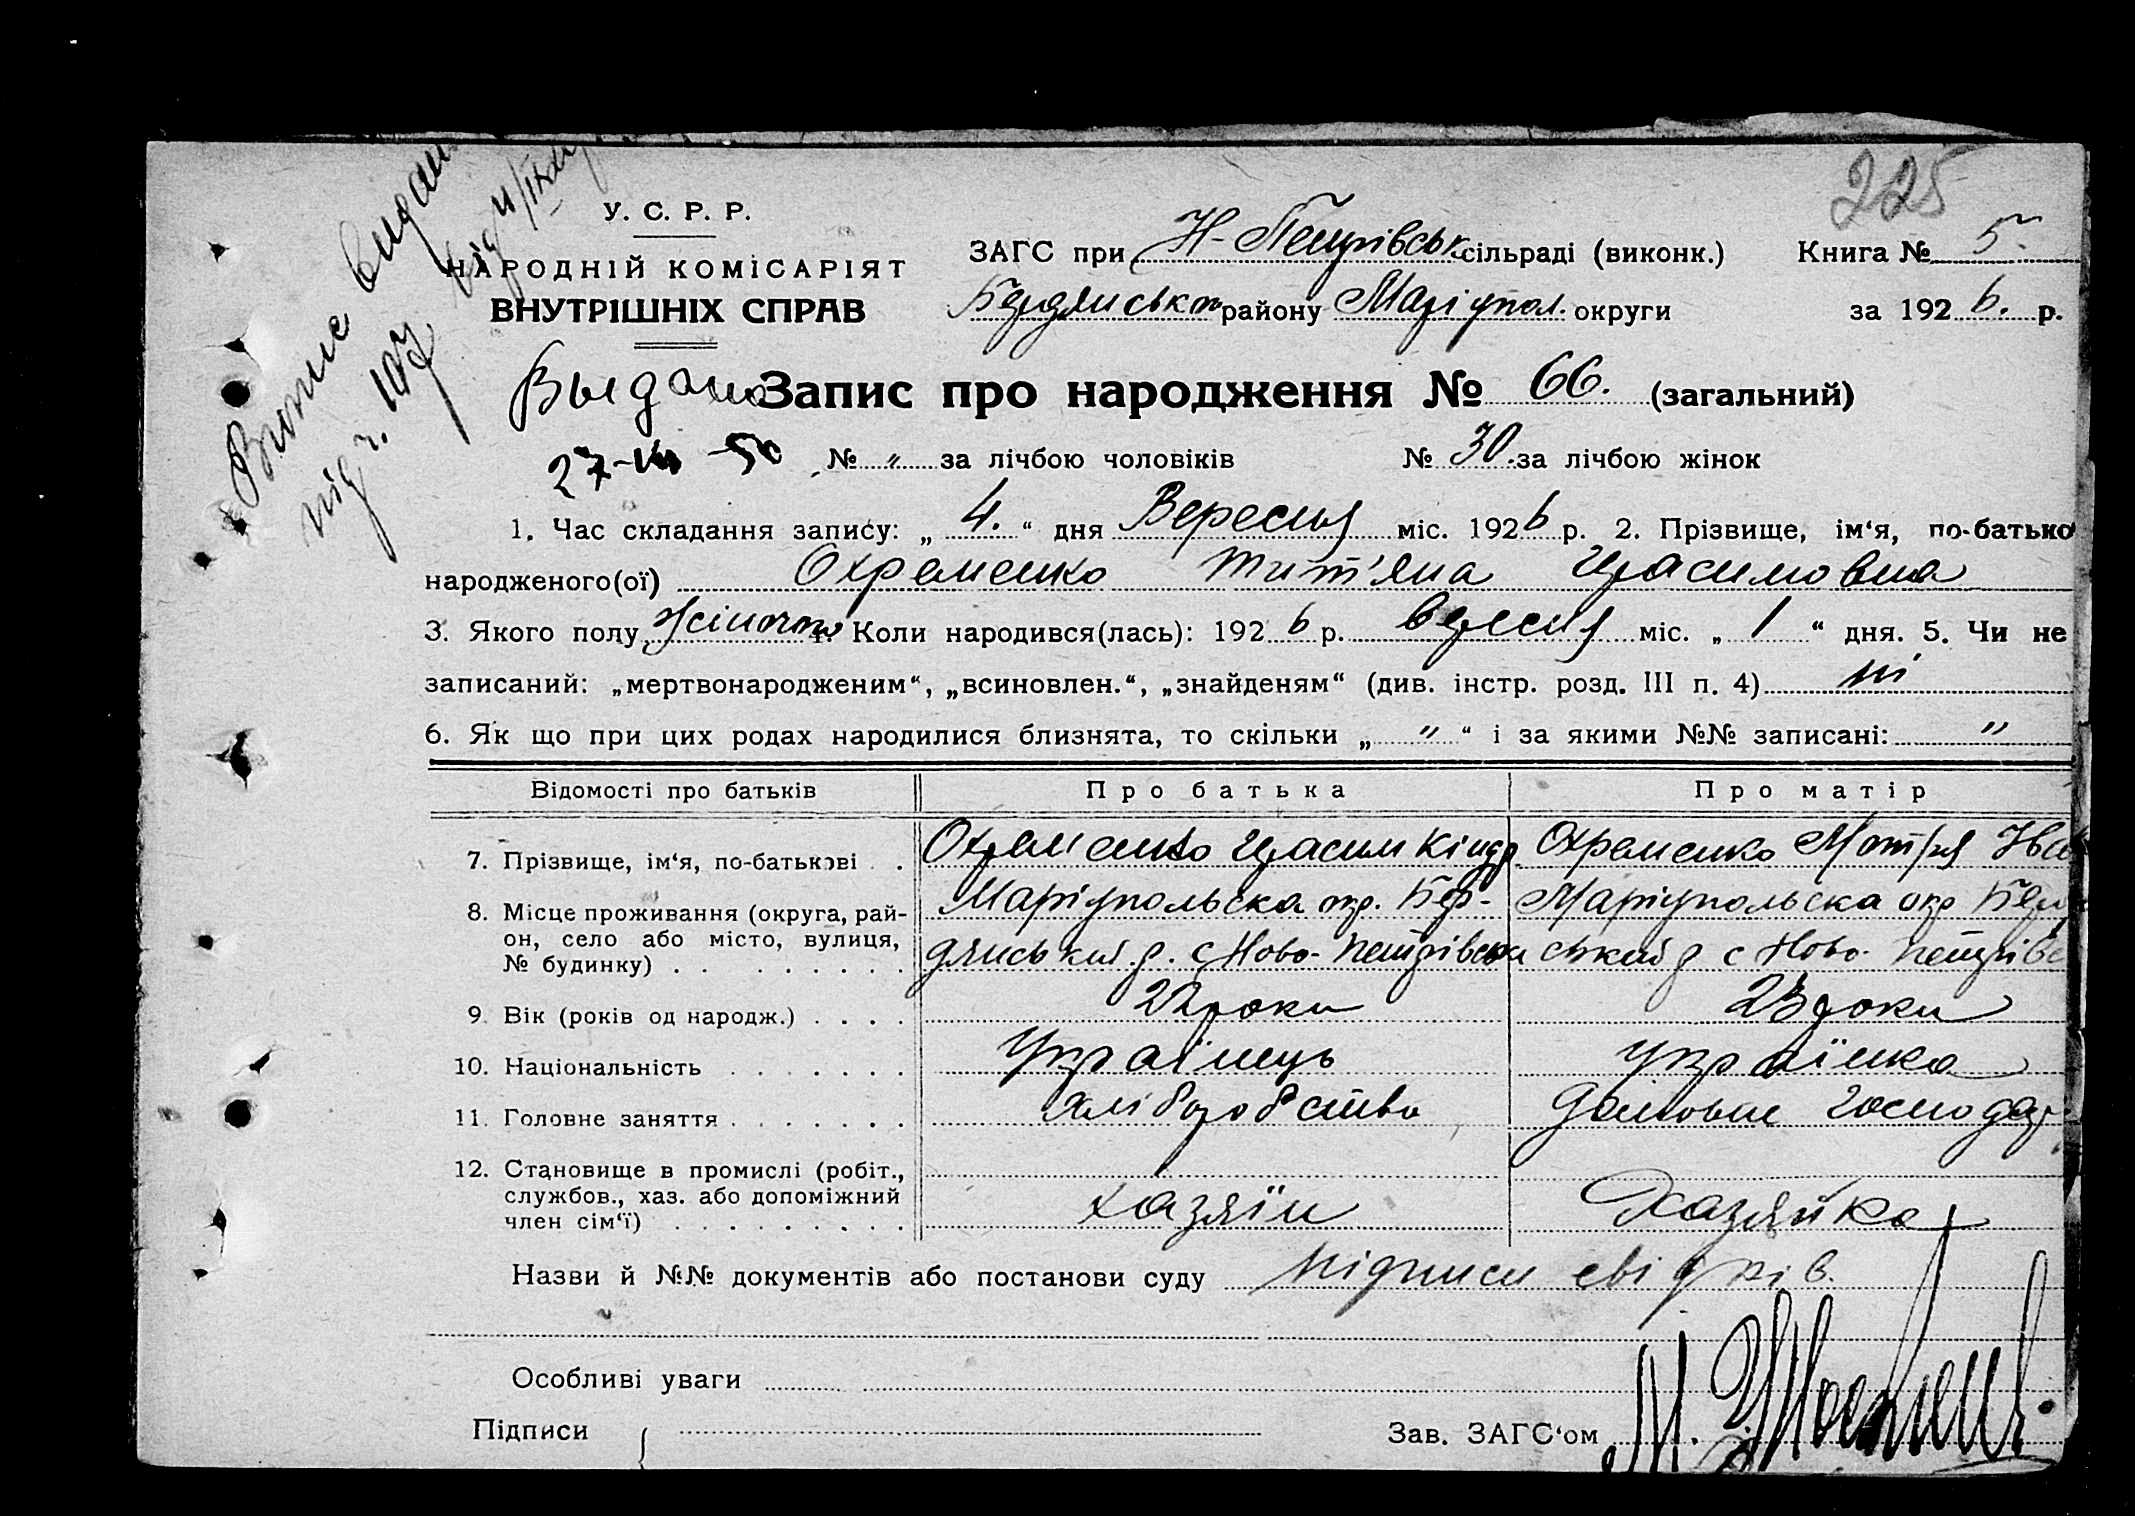 225
Випис видан
під ч. 107 від
У. С. Р. Р.
НАРОДНІЙ КОМІСАРІЯТ
ВНУТРІШНІХ СПРАВ
ЗАГС при Н-Петрівськ. сільраді (виконк.) Книга № 5.
Бердянськ. району Маріупол. округи за 1926. р.
Выдано Запис про народження № 66. (загальний)
27-VII-50 № „ за лічбою чоловіків № 30. за лічбою жінок
1. Час складання запису: „ 4. “ дня Вересня міс. 1926 р. 2. Прізвище, ім‘я, по-батько
народженого(ої) Охременко Тит'яна Герасимовна
3. Якого полу жіночого 4. Коли народився(лась): 1926 р. вересня міс. „ 1 “ дня. 5. Чи не
записаний: „мертвонародженим“, „всиновлен.“, „знайденям“ (див. інстр. розд. III п. 4) ні
6. Як що при цих родах народилися близнята, то скільки „ " “ і за якими №№ записані: "
Відомості про батьків Про батька Про матір
7. Прізвище, ім‘я, по-батькові . . Охременко Герасим Кіндр Охременко Мотря Іва
8. Місце проживання (округа, рай- Маріупольска окр. Бер- Маріупольска окр Бердя
он, село або місто, вулиця, дянський р. с Ново-Петрівськ ський р с Ново-Петрівс
№ будинку) . . . . . . . .
9. Вік (років од народж.) . . . . 22 роки 23 роки
10. Національність . . . . . . . Українець Українка
11. Головне заняття . . . . . . . хліборобство домове господар
12. Становище в промислі (робіт.,
службов., хаз. або допоміжний хазяїн Хазяйка
член сім‘ї) . . . . . . . . .
Назви й №№ документів або постанови суду підписи свідків.
Особливі уваги
Підписи { Зав. ЗАГС‘ом